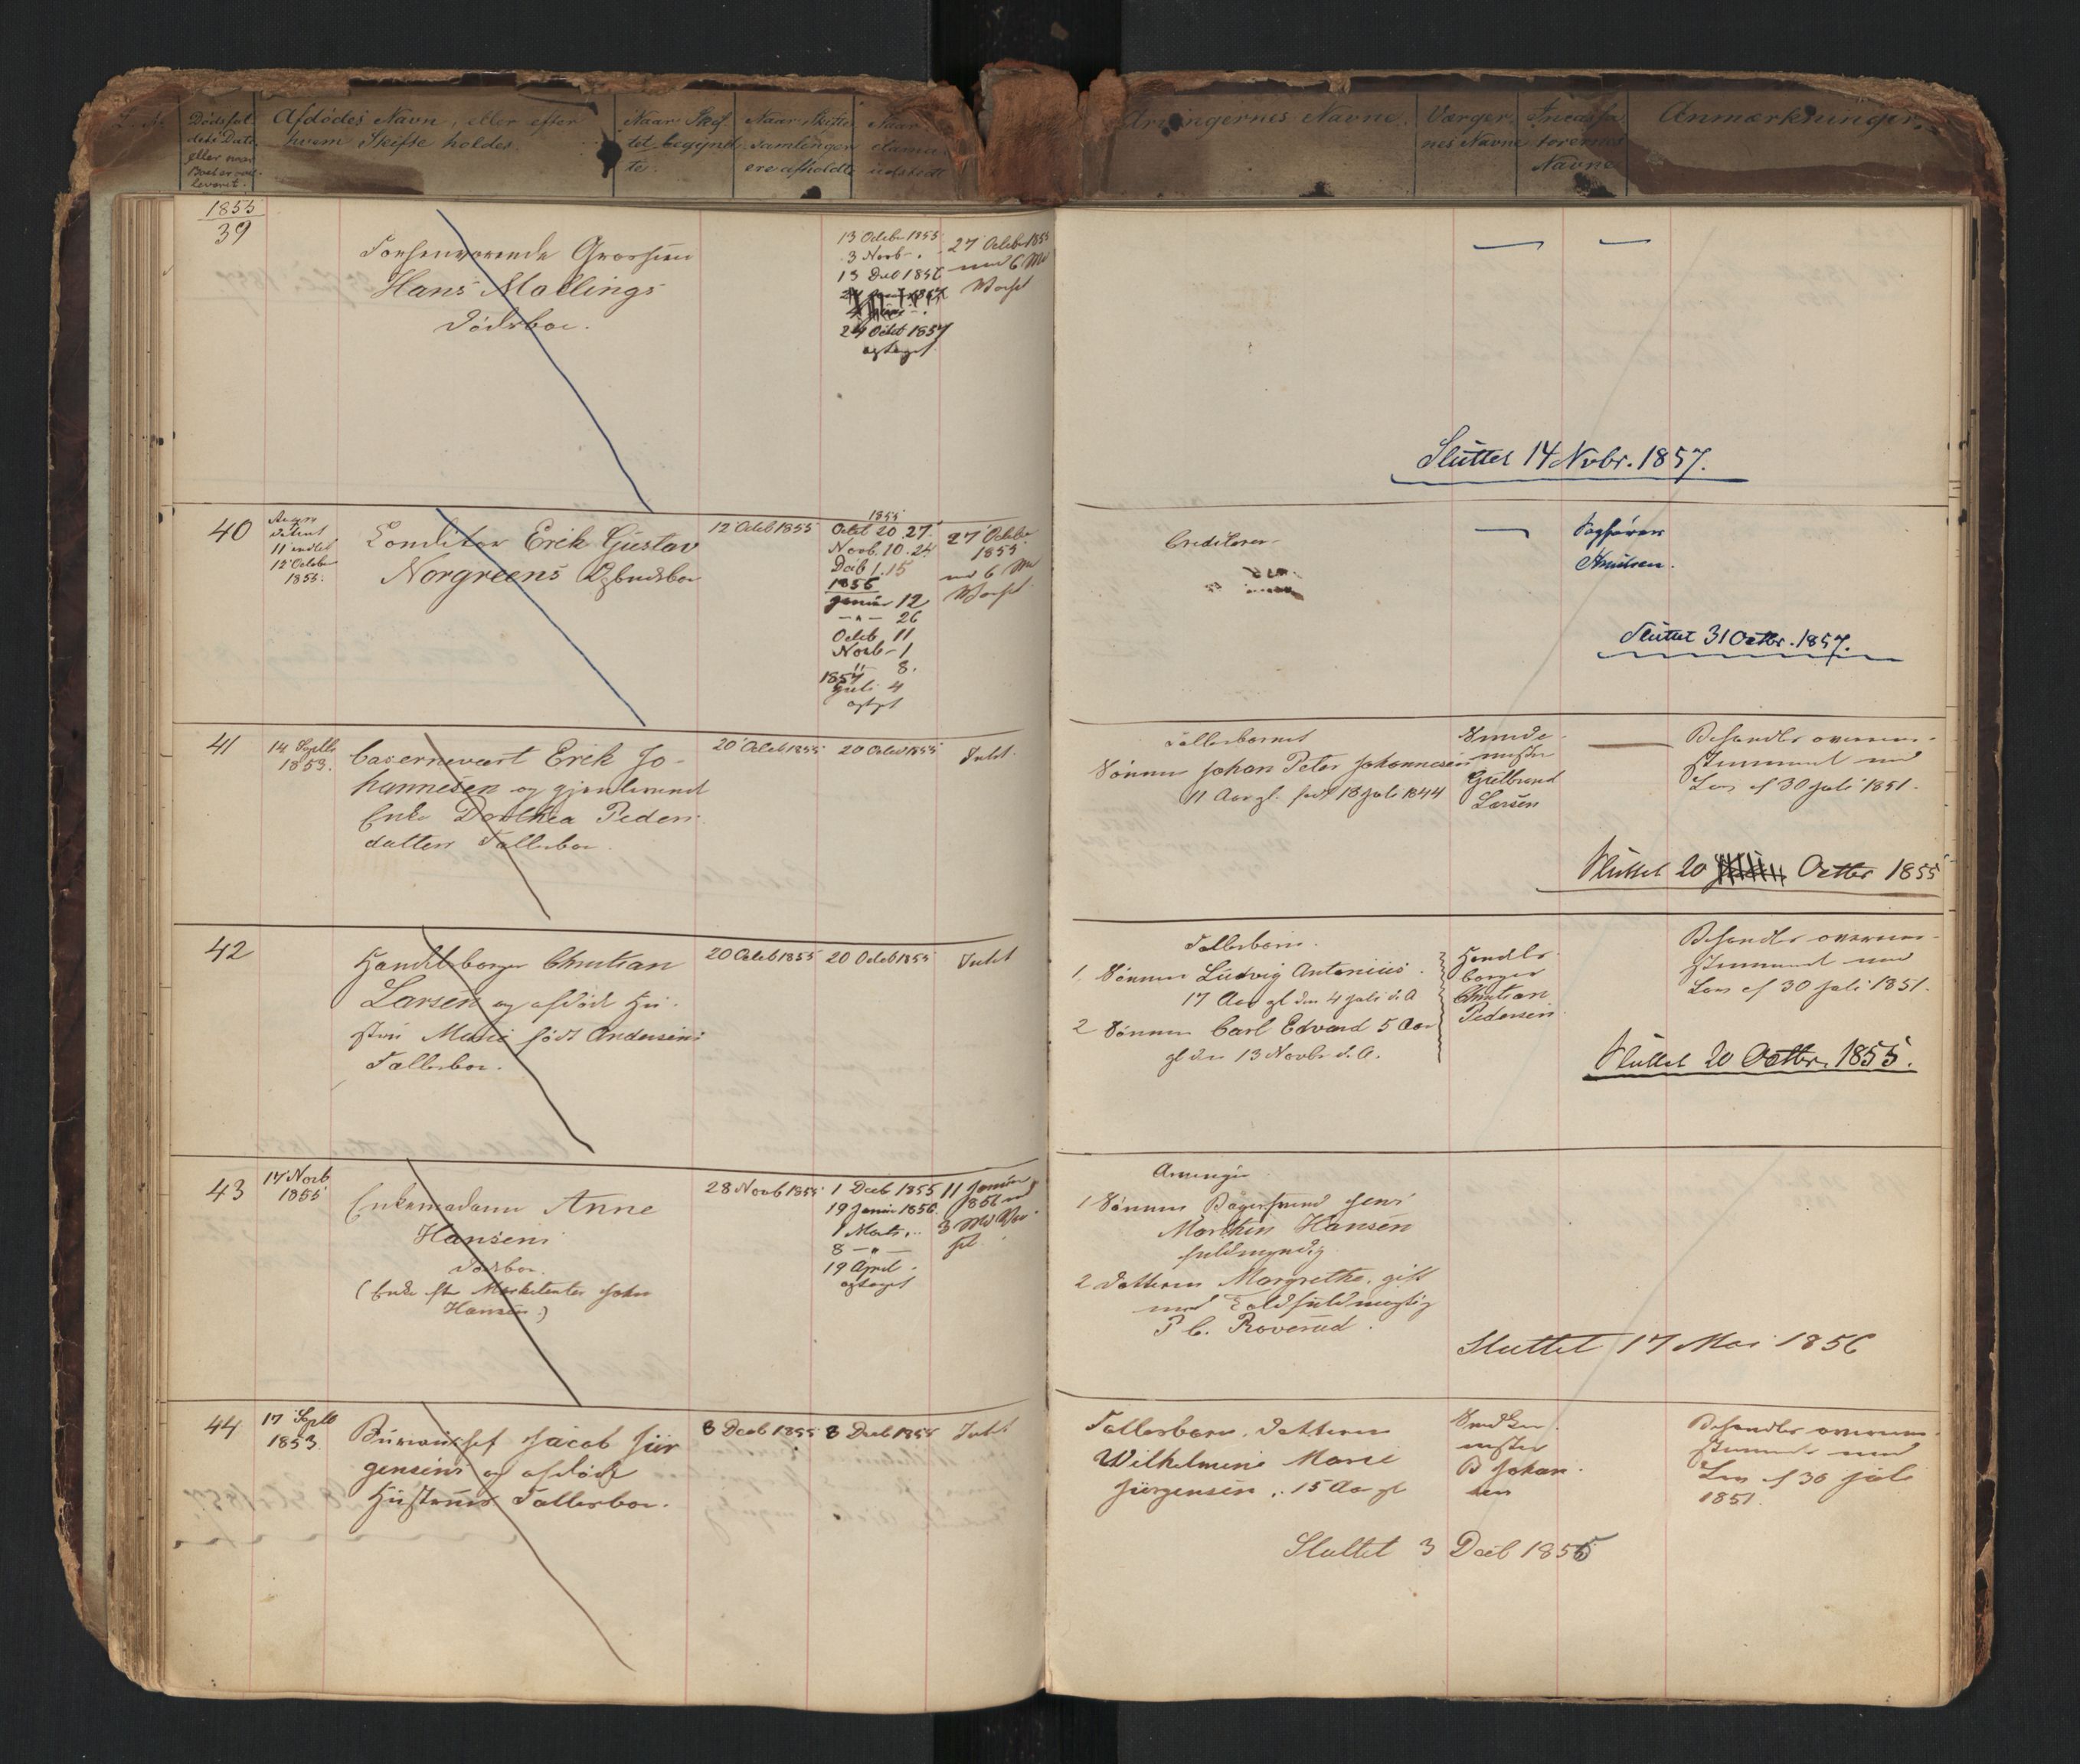 Dødsfal
dets Dato
eller naar
Boet er over
leveret.
Afdødes Navn, eller efter
hvem Skifte holdes.
Naar Skif
tet begynd
te.
Naar Skifte
samlingen
ere afholdte
Naar
udstædt
Arvingernes Navne.
Værger
nes Navne
Incassa
torernes
Navne
Anmærkninger.
1855
39
Hans Mallings
Dødsboe.
13 Octobr 1855
3 Novb
13 Dec 1856
24 Octob 1857
optaget
27 Octobr 1855
med 6 Md
Varsel
Sluttet 14 Novbr. 1857.
40
11 
12 Octobr
1855.
Conditor Erik Gustav
Norgreens Opbudsboe
12 Octob 1855
1855
Octob 20. 27.
Novb. 10. 24
Decb 1. 15
1856
Januar 12
— " — 26
Octob 11
Novb - 1
" 8.
1857
Juli 4
optaget
27 Octobr
1855
med 6 Md
Varsel
Creditorer
Sagfører
Knudsen.
Sluttet 31 Octbr. 1857.
41
14 Septb
1853.
Casernevært Erik Jo-
hannesen og gjenlevende
Enke Dorthea Peders
datters Fællesboe.
20 Octob 1855
20 Octob 1855
Intet.
Fællesbarnet
Sønnen Johan Peter Johannesen
11 Aar gl. født 18 Juli 1844
mester
Gulbrand
Larsen
Behandles overens-
stemmende med
Lov af 30 Juli 1851.
Sluttet 20 Octbr 1855
42
Handelsborger Christian
Larsen og afdøde Hu-
stru Marie født Andersens
Fællesboe.
20 Octob 1855
20 Octob 1855
Intet
Fællesbørn.
1. Sønnen Ludvig Antonius
17 Aar gl den 4 Juli d. A
2 Sønnen Carl Edvard 5 Aar
gl den 13 Novbr d. A.
Handels
borger
Christian
Pedersen
Behandles overens-
stemmende med
Lov af 30 Juli 1851.
Sluttet 20 Octbr. 1855.
43
17 Novb
1855
Enkemadame Anne
Hansens
Dødsboe.
(Enke efter Marketenter John
Hansen)
28 Novb 1855
1 Decb 1855
19 Januar 1856.
1 Marts "
8 — " —
19 April -
optaget
11 Januar
1856 med
3 Md Var
sel
Arvinger
1 Sønnen Bagersvend Jens
Marthin Hansen
fuldmyndig
2 Datteren Margrethe, gift
med Toldfuldmægtig
P C. Roverud.
Sluttet 17 Mai 1856
44
17 Septb
1853.
Jacob Jür
gensens og afdøde
Hustrues Fællesboe.
3 Decb 1855
3 Decb 1855
Intet
Fællesbarn, Datteren
Wilhelmine Marie
Jürgensen, 15 Aar gl
mester
B Johan-
sen
Behandles overens-
stemmende med
Lov af 30 Juli
1851.
Sluttet 3 Decb 1855